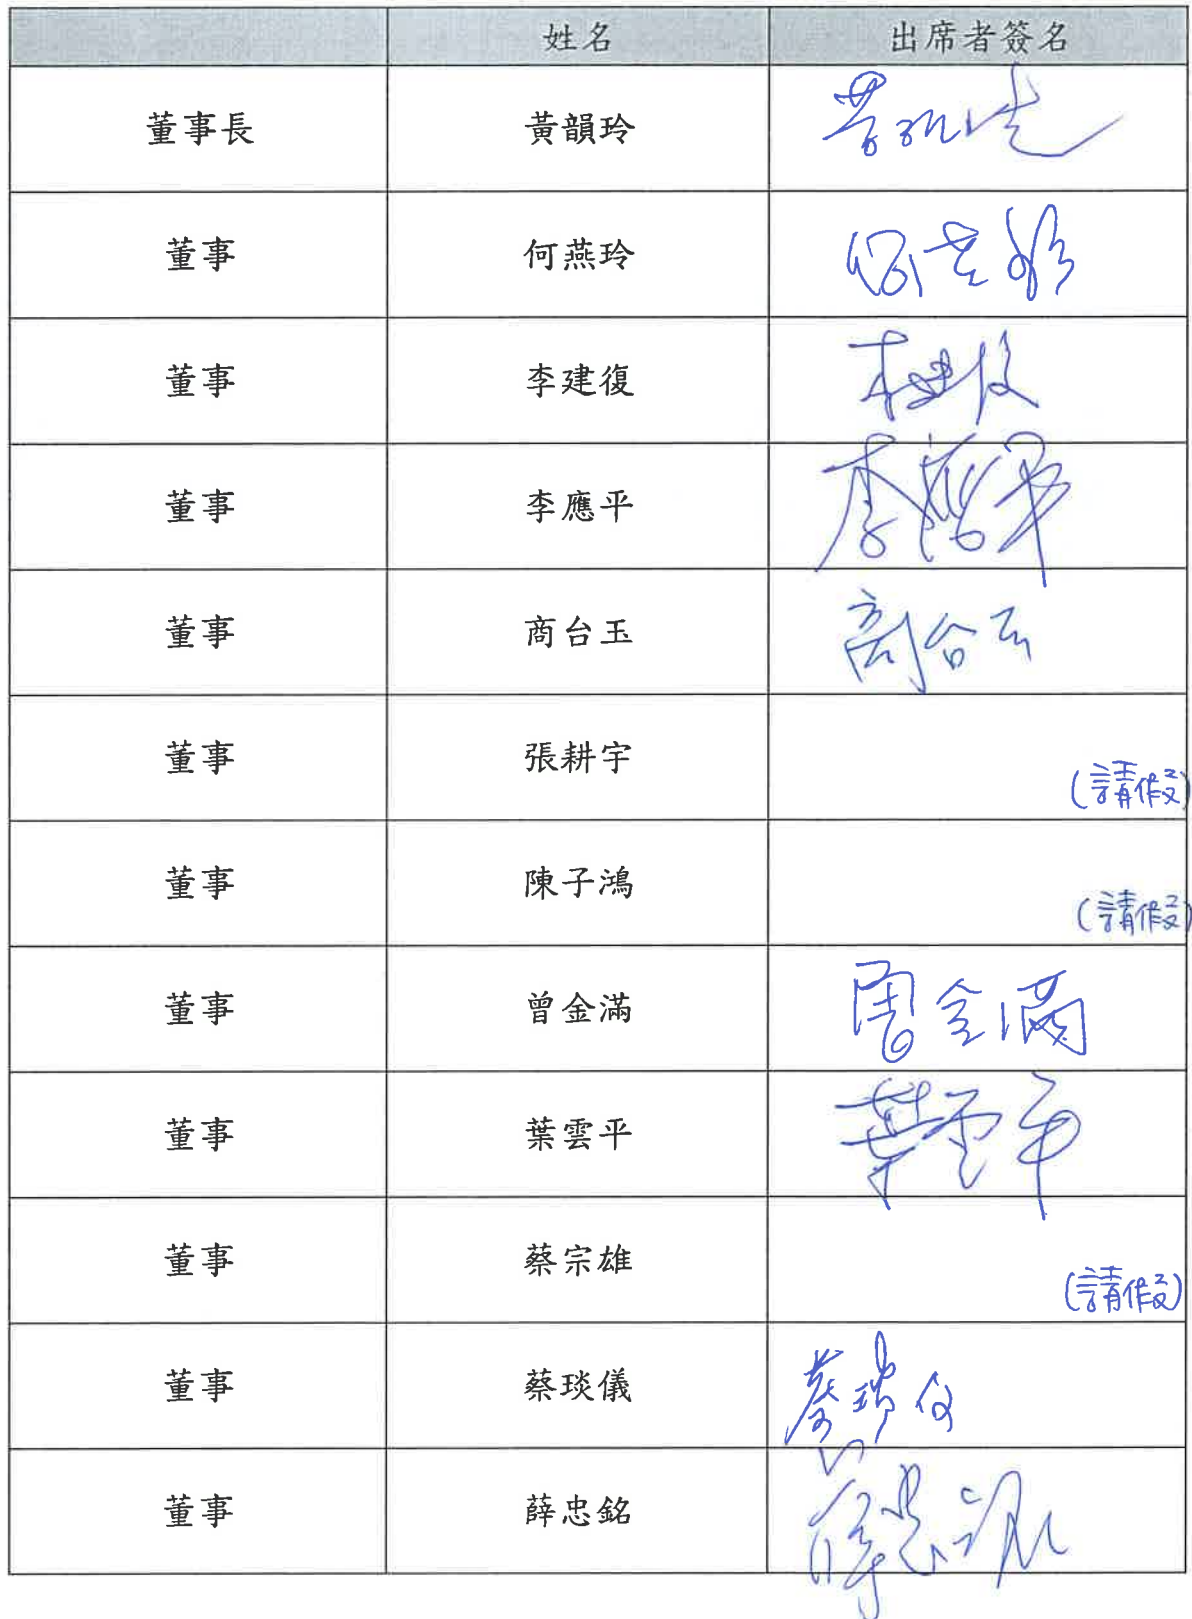 姓名 出席者簽名
董事長 黃韻玲
董事 何燕玲
董事 李建復 李建復
董事 李應平 李應平
董事 商台玉 商台玉
董事 張耕宇 (請假)
董事 陳子鴻 (請假)
董事 曾金滿 曾金滿
董事 葉雲平 葉雲平
董事 蔡宗雄 (請假)
董事 蔡琰儀
董事 薛忠銘